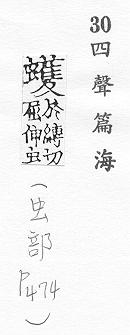 30四聲篇海
蠖於縛切屈伸虫
(虫部
P474)